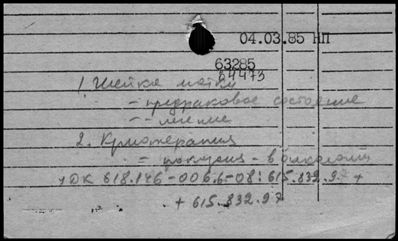 04.03.85 НП
63285
64473
1. Шейка матки
- предраковое состояние
- - лечение
2. Криотерапия
= показания - в онкологии
УДК 618.146-006.6-08:615.832.97 +
+ 615.832.97